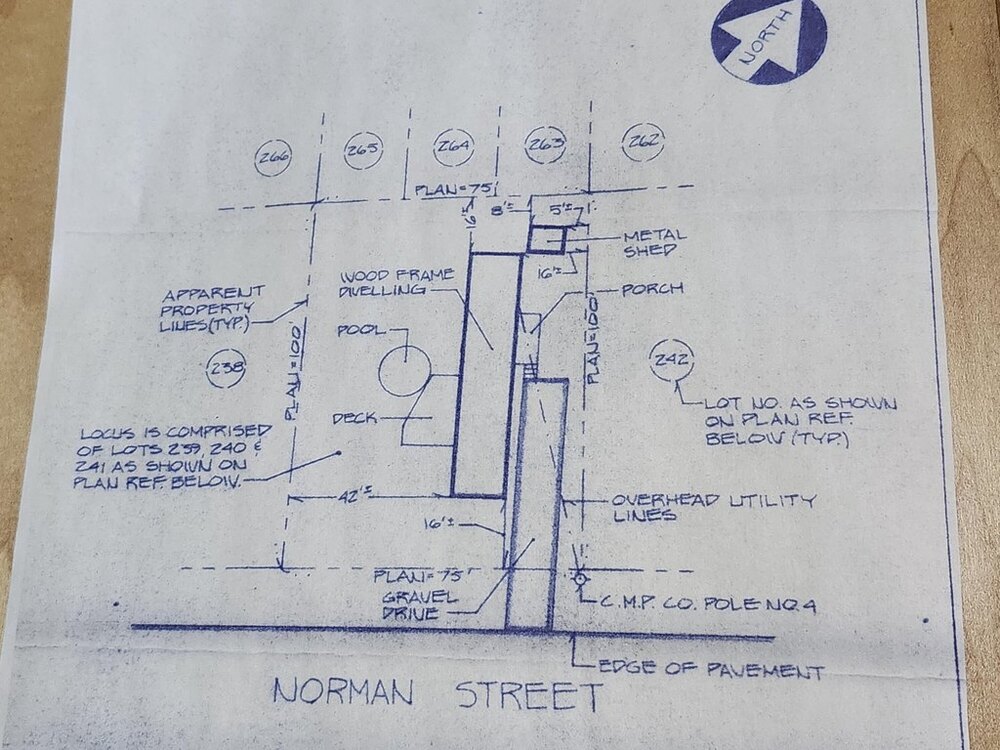 NORTH
266
265
264
263
262
PLAN=75'
16'±
8'±
5'±
METAL
SHED
16'±
WOOD FRAME
DWELLING
PORCH
APPARENT
PROPERTY
LINES (TYP.)
POOL
PLAN=100'
PLAN=100'
238
242
DECK
LOT NO. AS SHOWN
ON PLAN REF.
BELOW (TYP.)
LOCUS IS COMPRISED
OF LOTS 239, 240 &
241 AS SHOWN ON
PLAN REF. BELOW.
42'±
OVERHEAD UTILITY
LINES
16'±
PLAN=75'
GRAVEL
DRIVE
C.M.P. CO. POLE NO. 4
EDGE OF PAVEMENT
NORMAN STREET